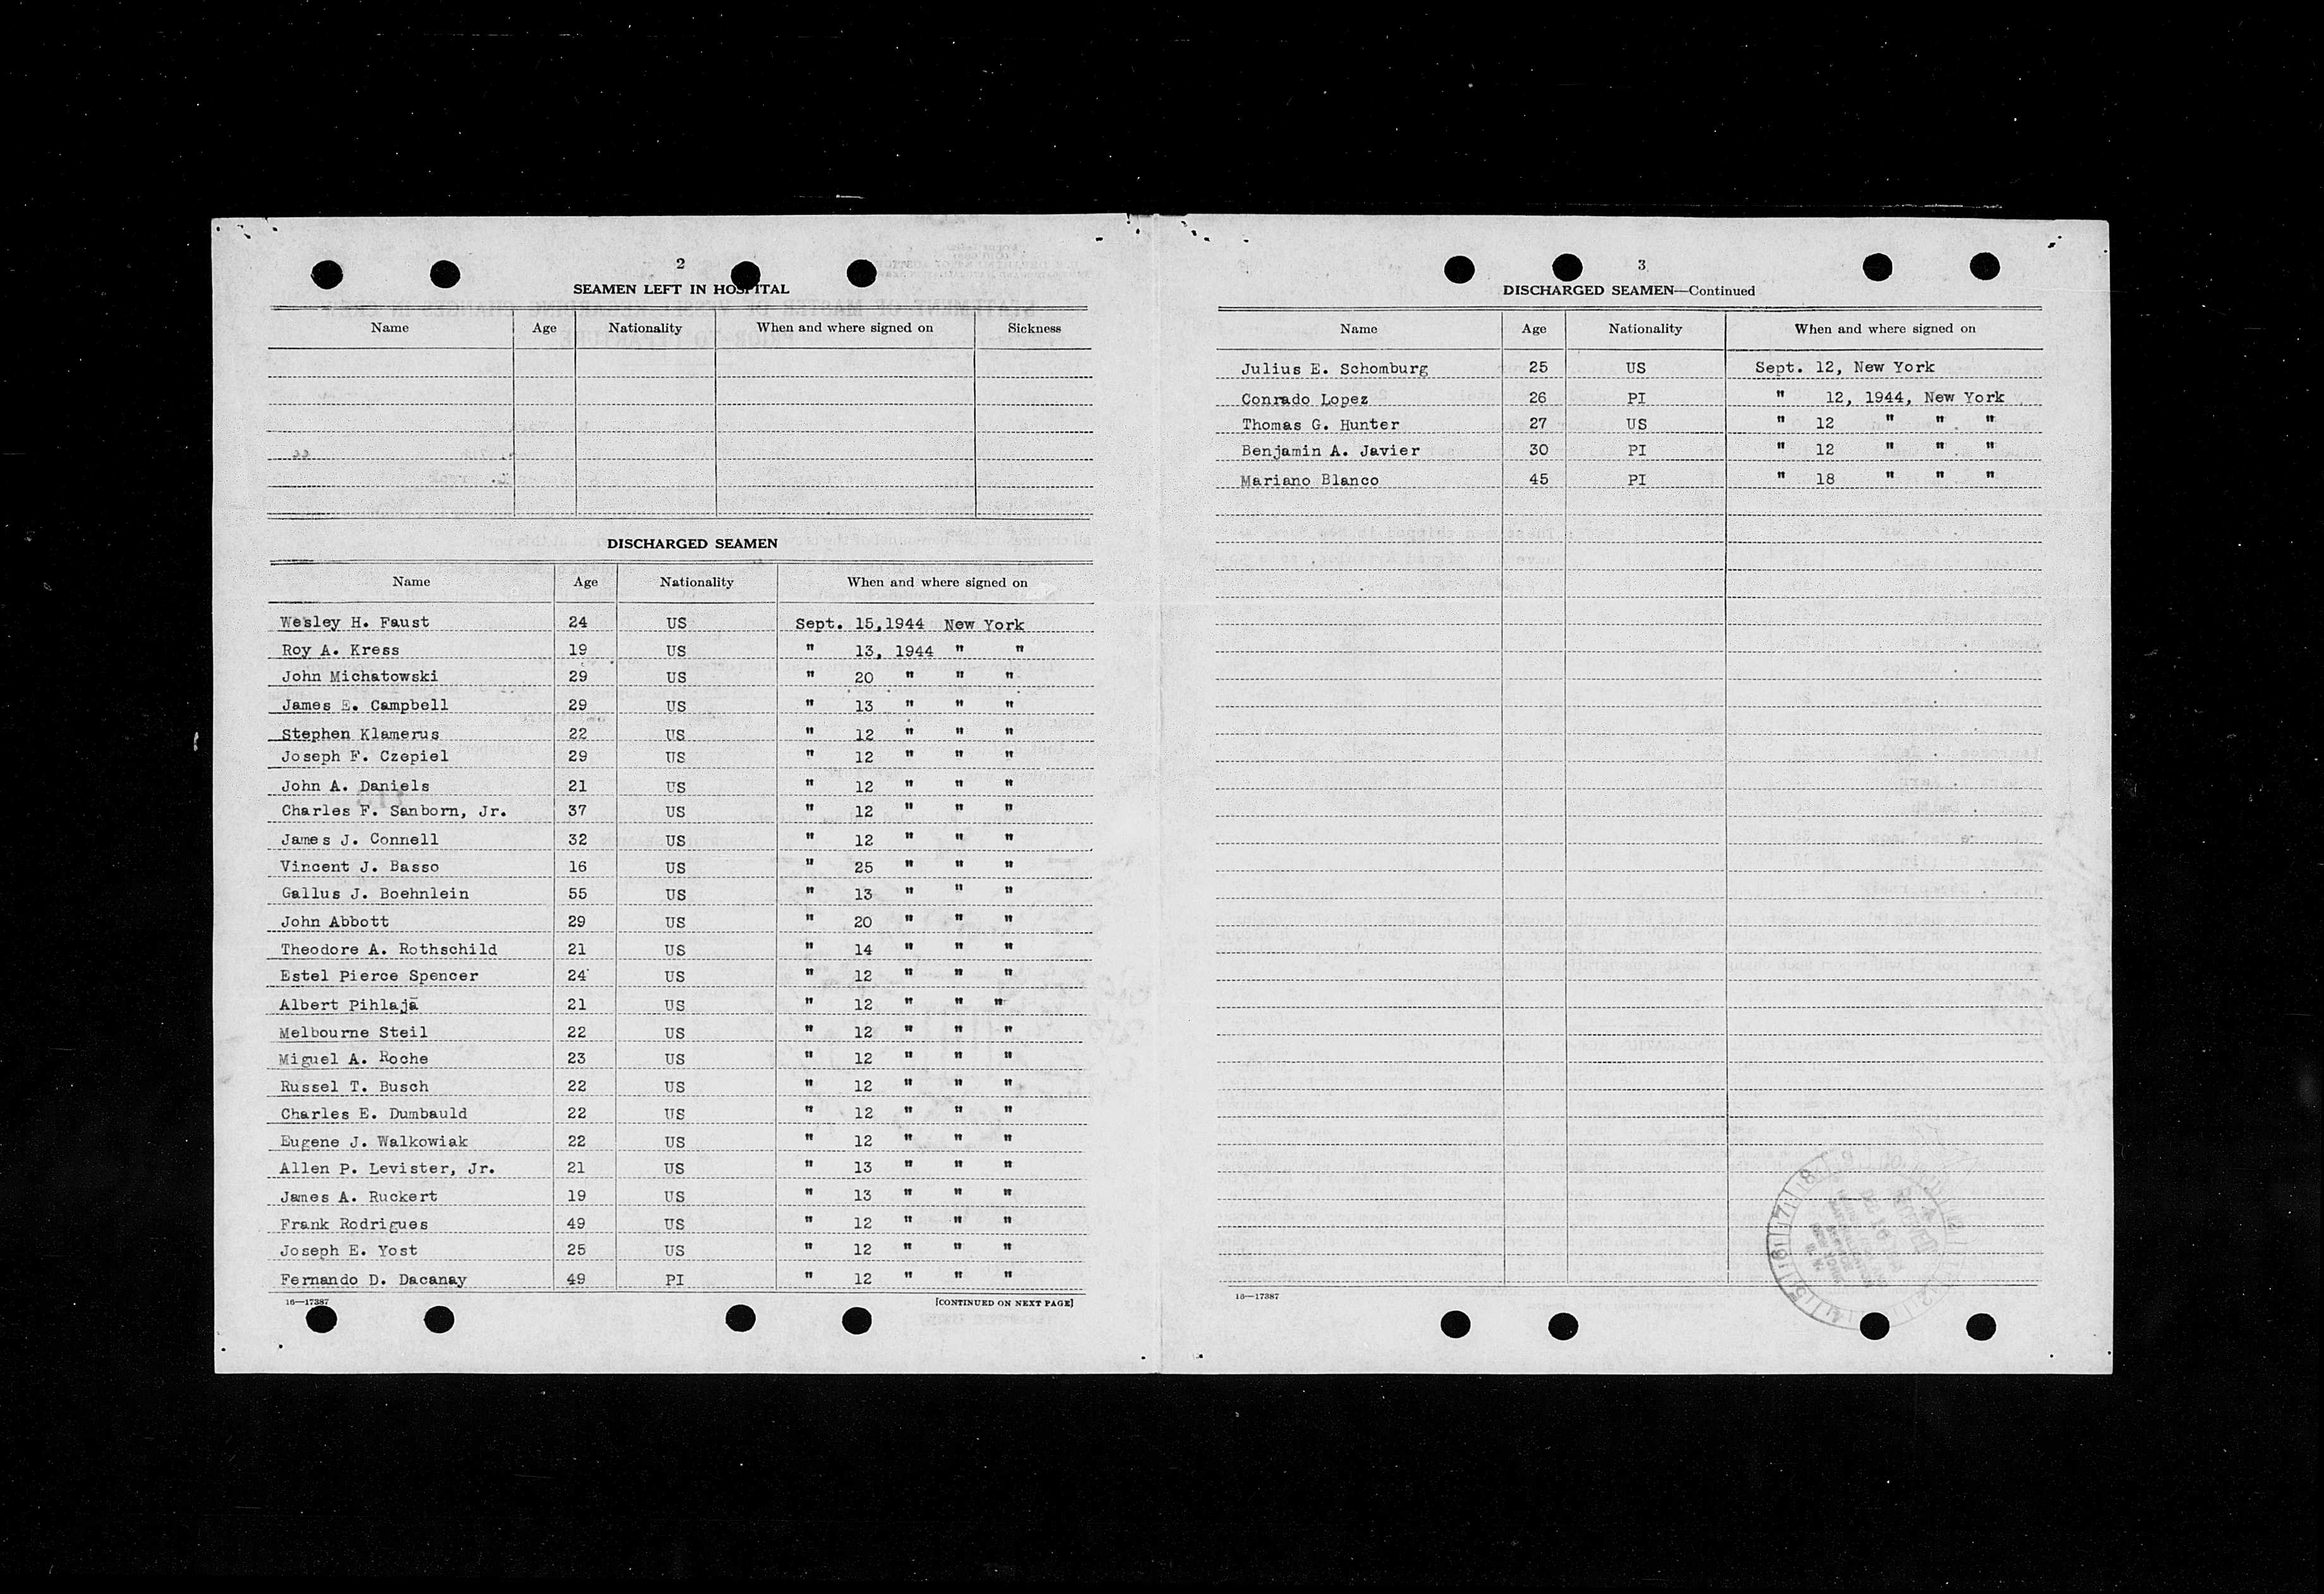 2
SEAMEN LEFT IN HOSPITAL
Name Age Nationality When and where signed on Sickness
DISCHARGED SEAMEN
Name Age Nationality When and where signed on
Wesley H. Faust 24 US Sept. 15,1944 New York
Roy A. Kress 19 US " 13, 1944 " "
John Michatowski 29 US " 20 " " "
James E. Campbell 29 US " 13 " " "
Stephen Klamerus 22 US " 12 " " "
Joseph F. Czepiel 29 US " 12 " " "
John A. Daniels 21 US " 12 " " "
Charles F. Sanborn, Jr. 37 US " 12 " " "
James J. Connell 32 US " 12 " " "
Vincent J. Basso 16 US " 25 " " "
Gallus J. Boehnlein 55 US " 13 " " "
John Abbott 29 US " 20 " " "
Theodore A. Rothschild 21 US " 14 " " "
Estel Pierce Spencer 24 US " 12 " " "
Albert Pihlajā 21 US " 12 " " "
Melbourne Steil 22 US " 12 " " "
Miguel A. Roche 23 US " 12 " " "
Russel T. Busch 22 US " 12 " " "
Charles E. Dumbauld 22 US " 12 " " "
Eugene J. Walkowiak 22 US " 12 " " "
Allen P. Levister, Jr. 21 US " 13 " " "
James A. Ruckert 19 US " 13 " " "
Frank Rodrigues 49 US " 12 " " "
Joseph E. Yost 25 US " 12 " " "
Fernando D. Dacanay 49 PI " 12 " " "
16—17387 [CONTINUED ON NEXT PAGE]
3
DISCHARGED SEAMEN—Continued
Name Age Nationality When and where signed on
Julius E. Schomburg 25 US Sept. 12, New York
Conrado Lopez 26 PI " 12, 1944, New York
Thomas G. Hunter 27 US " 12 " " "
Benjamin A. Javier 30 PI " 12 " " "
Mariano Blanco 45 PI " 18 " " "
16—17387